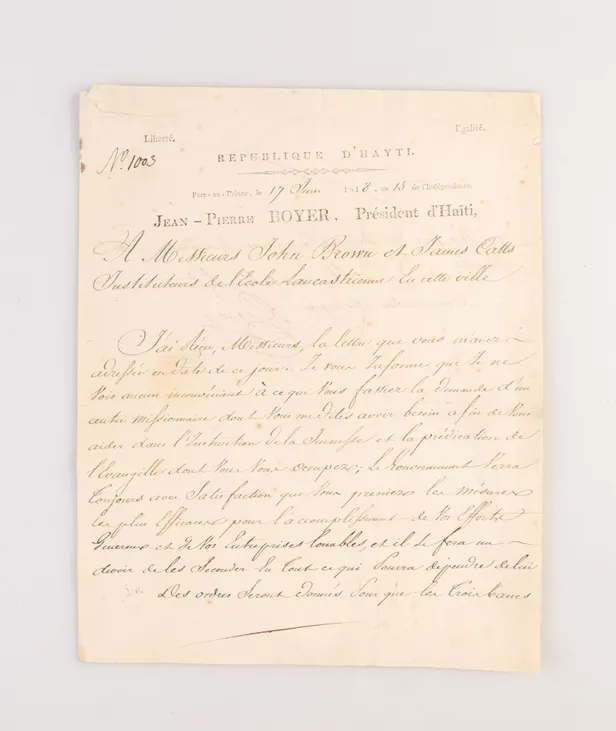 Liberté. Egalité.
Nº 1003
REPUBLIQUE D'HAYTI.
Port-au-Prince, le 17 Juin 1818, an 15 de l'Indépendance.
JEAN-PIERRE BOYER, Président d'Haïti,
A Messieurs John Brown et James Catts
Instituteurs de l'Ecole Lancastrienne En cette ville
J'ai Reçu, Messieurs, la lettre que vous m'avez
adressée en date de ce jour. Je vous Informe que Je ne
Vois aucun inconvénient à ce que Vous fassiez la demande d'un
autre Missionnaire dont Vous me dites avoir besoin afin de Vous
aider dans l'Instruction de la Jeunesse et la prédication de
l'Evangille dont Vous Vous occupez; Le Gouvernement Verra
Toujours avec Satisfaction que Vous preniez les mésures
les plus Efficaces pour l'accomplissement de Vos Efforts
Généreux et de Vos Entreprises louables, et il Se fera un
devoir de les Seconder En tout ce qui Pourra dépendre de lui
Des ordres Seront donnés Pour que les Trois